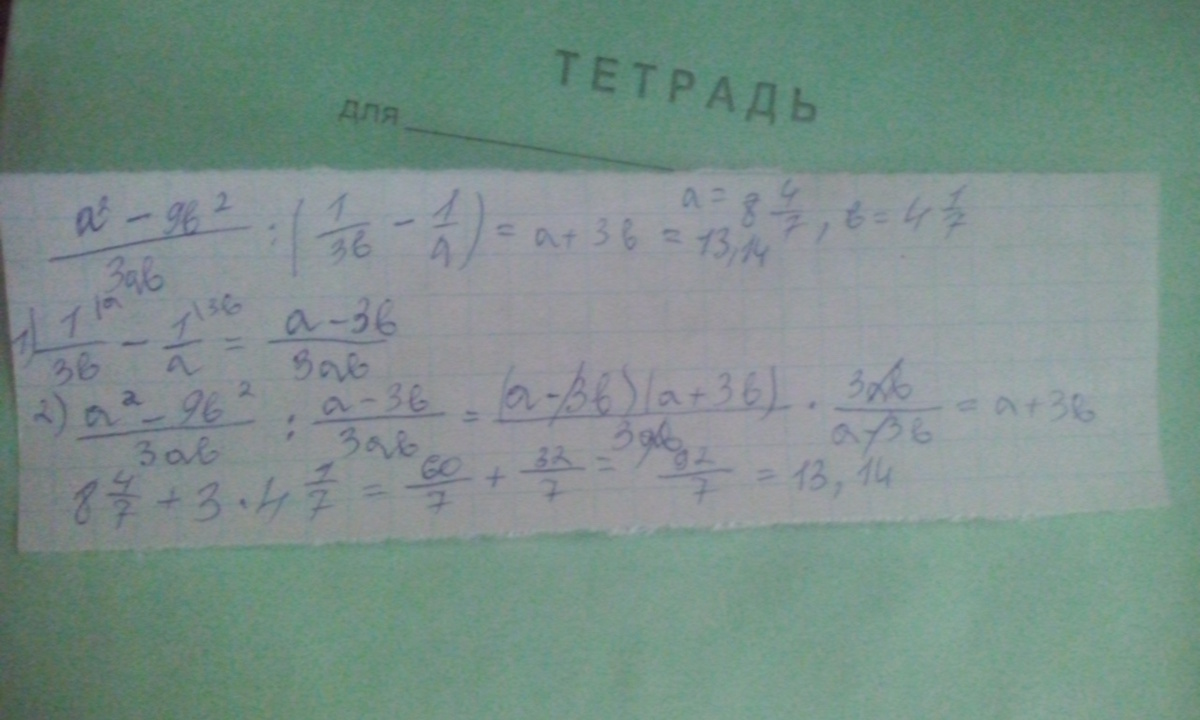 ТЕТРАДЬ
для
(a² - 9b²)/(3ab) : (1/(3b) - 1/a) = a + 3b = 13,14 a = 8 4/7, b = 4 1/7
1) 1/(3b) |a - 1/a |3b = (a - 3b)/(3ab)
2) (a² - 9b²)/(3ab) : (a - 3b)/(3ab) = (a - 3b)(a + 3b)/(3ab) · 3ab/(a - 3b) = a + 3b
8 4/7 + 3 · 4 1/7 = 60/7 + 32/7 = 92/7 = 13,14